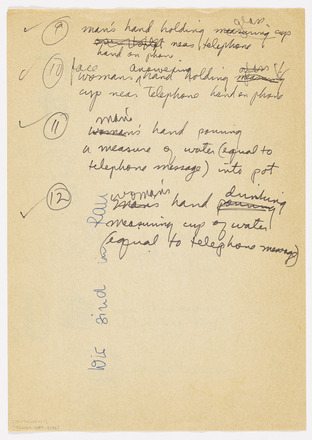 9 man's hand holding measuring cup
glass
near telephone
hand on phone
10 face answering glass
woman's hand holding measuring
cup near telephone hand on phone
11 man's
woman's hand pouring
a measure of water (equal to
telephone message) into pot
12 woman's drinking
man's hand pouring
measuring cup of water
(equal to telephone message)